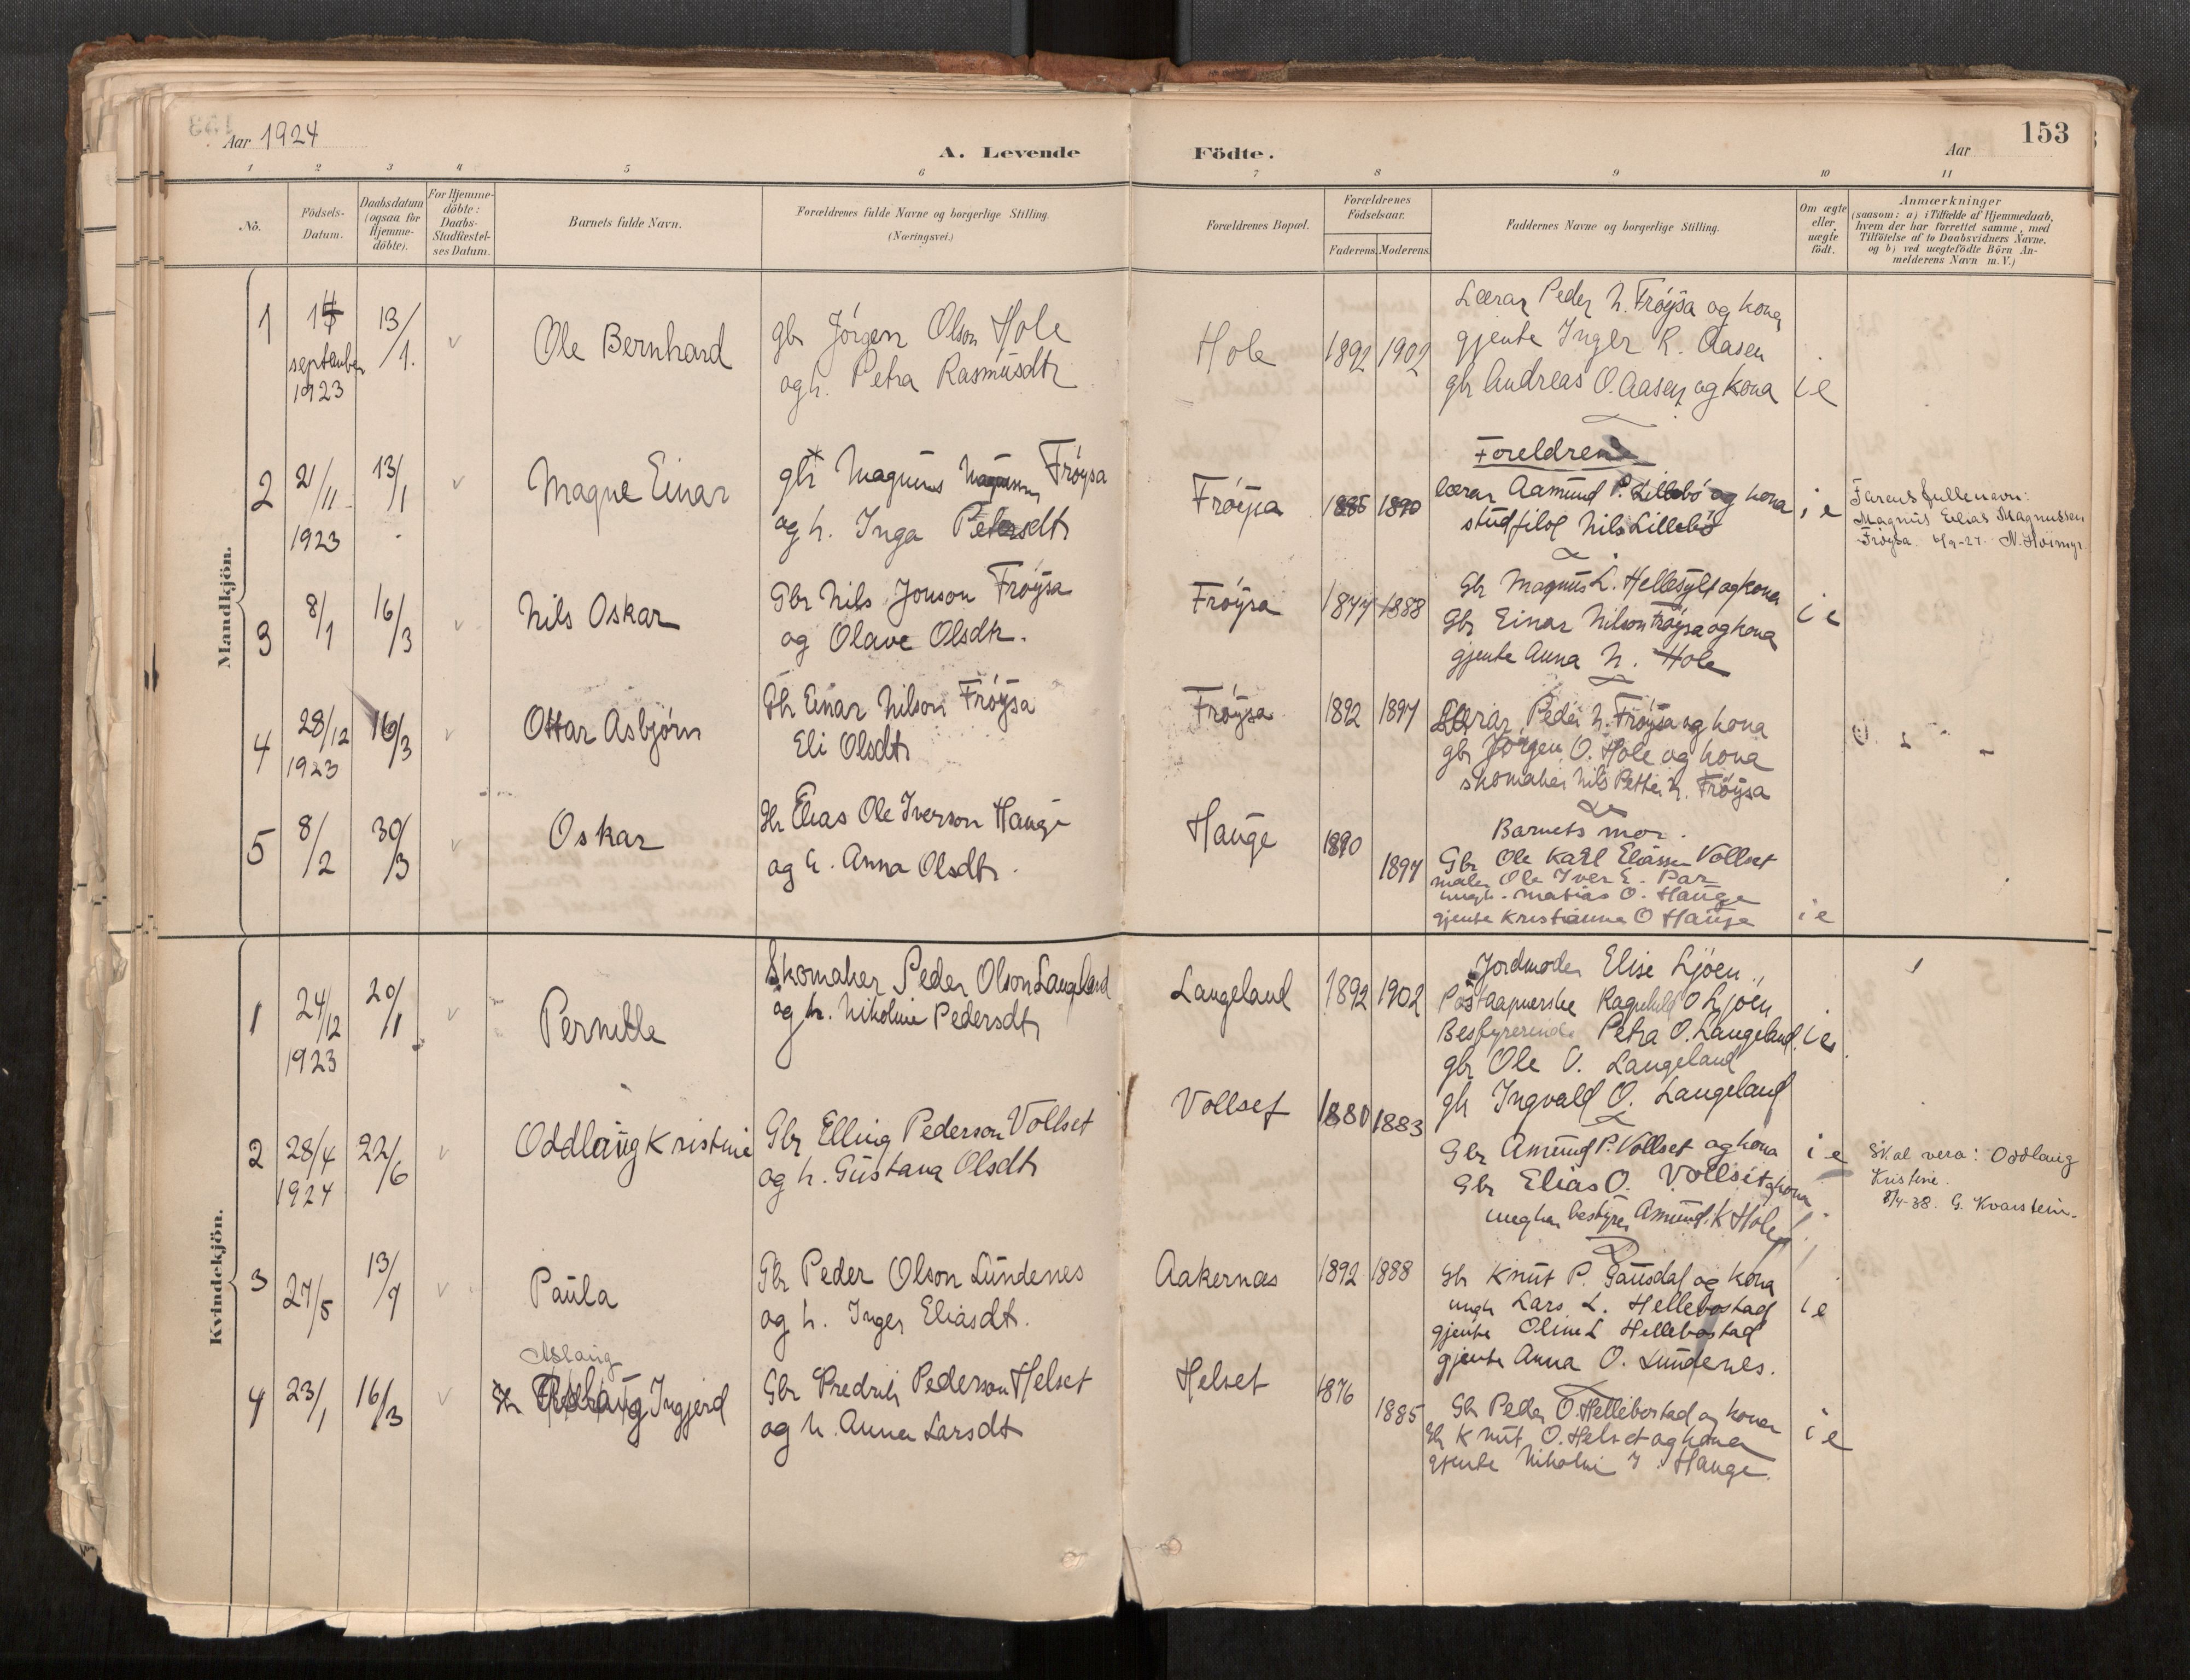 153
Aar 1924
A. Levende Födte.
Aar
1 2 3 4 5 6 7 8 9 10 11
Nö.
Födsels-Datum.
Daabsdatum (ogsaa for Hjemme-döbte).
For Hjemme-döbte: Daabs-Stadfæstel-ses Datum.
Barnets fulde Navn.
Forældrenes fulde Navne og borgerlige Stilling.
(Næringsvei.)
Forældrenes Bopæl.
Forældrenes Födselsaar.
Faderens. Moderens.
Faddernes Navne og borgerlige Stilling.
Om ægte eller uægte födt.
Anmærkninger
(saasom: a) i Tilfælde af Hjemmedaab, hvem der har forrettet samme, med Tilföielse af to Daabsvidners Navne. og b) ved uægtefödte Börn Anmelderens Navn m. V.)
Mandkjön.
1
september
1923
13/1.
Ole Bernhard
gbr Jörgen Olson Hole
og h. Petra Rasmusdtr
Hole
1892 1902
Lærar Peder N. Fröysa og kona
gjente Inger R. Aasen
gbr Andreas O. Aasen og kona
ie
2
21/11
1923
13/1
Magne Einar
gbr Magnus Magnussen Fröysa
og h. Inga Petersdtr
Fröysa
1885 1890
Foreldrene
lærar Aamund P. Lillebö og kona
stud filol Nils Lillebö
ie
Farens fulle navn:
Magnus Elias Magnussen
Fröysa
3
8/1
16/3
Nils Oskar
Gbr Nils Jonson Fröysa
og Olave Olsdtr.
Fröysa
1877 1888
Gbr Magnus L. Hellesylt og kona
Gbr Einar Nilson Fröysa og kona
gjente Anna N. Hole
ie
4
28/12
1923
16/3
Ottar Asbjörn
Gbr Einar Nilson Fröysa
Eli Olsdtr
Fröysa
1892 1897
Lærar Peder N. Fröysa og kona
gbr Jörgen O. Hole og kona
skomaker Nils Petter N. Fröysa
5
8/2
30/3
Oskar
Gbr Elias Ole Iverson Hauge
og h. Anna Olsdtr.
Hauge
1890
1897
Barnets mor.
Gbr Ole Karl Eliassen Vollset
maler Ole Iver E. Par
ungk. Matias O. Hauge
gjente Kristianna O Hauge
ie
Kvindekjön.
1
24/12
1923
20/1
Pernille
Skomaker Peder Olson Langeland
og h. Nikoline Pedersdtr
Langeland
1892 1902
Jordmoder Elise Ljöen
Postaapnerske Ragnhild O Ljöen
Bestyrerinde Petra O. Langeland
gbr Ole O. Langeland
gbr Ingvald O. Langeland
ie
2
28/4
1924
22/6
Oddlaug Kristine
Gbr Elling Pederson Vollset
og h. Gustava Olsdtr
Vollset
1880 1883
Gbr Amund P. Vollset og kona
Gbr Elias O. Vollset og kona
ungkar bestyrer Amund K Hole
ie
Skal vera: Oddlaug
Kristine.
8/4-38. G. Kvarstein.
3
27/5
13/7
Paula
Gbr Peder Olson Lundenes
og h. Inger Eliasdtr.
Aakernæs
1892 1888
Gbr Knut P. Gausdal og kona
ungk Lars L. Hellebostad
gjente Oline L Hellebostad
gjente Anna O. Lundenes.
ie
4
23/1
16/3
Aslaug
Ingjerd
Gbr Fredrik Pederson Helset
og h. Anna Larsdtr
Helset
1876
1885
Gbr Peder O. Hellebostad og kona
Gbr Knut O. Helset og kona
gjente Nikoline I. Hauge.
ie